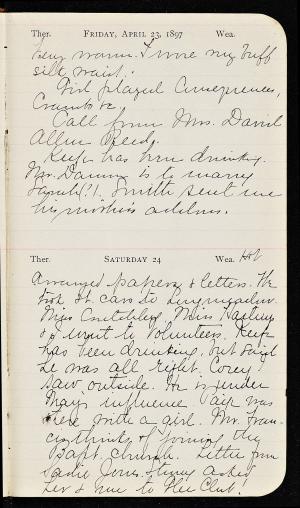 Ther. FRIDAY, APRIL 23, 1897 Wea.
Very warm. I wore my buff
silk waist.
Girl played Consequences,
Crambo &c.
Call from Mrs. David
Allen Reed.
Keefe has been drinking.
Mrs. is to marry
Smith sent me
his mother's address.
Ther. SATURDAY 24 Wea. Hot
Arranged papers & letters. We
took St. cars to Longmeadow.
Miss Critchley, Miss
& I went to Volunteers. Keefe
has been drinking, but said
he was all right. Corey I
saw outside. He is under
influence was
there with a girl. Mr. Fran-
cis thinks of joining the
Bapt. Church. Letter from
Sadie Jones. asked
her & me to Glee Club.